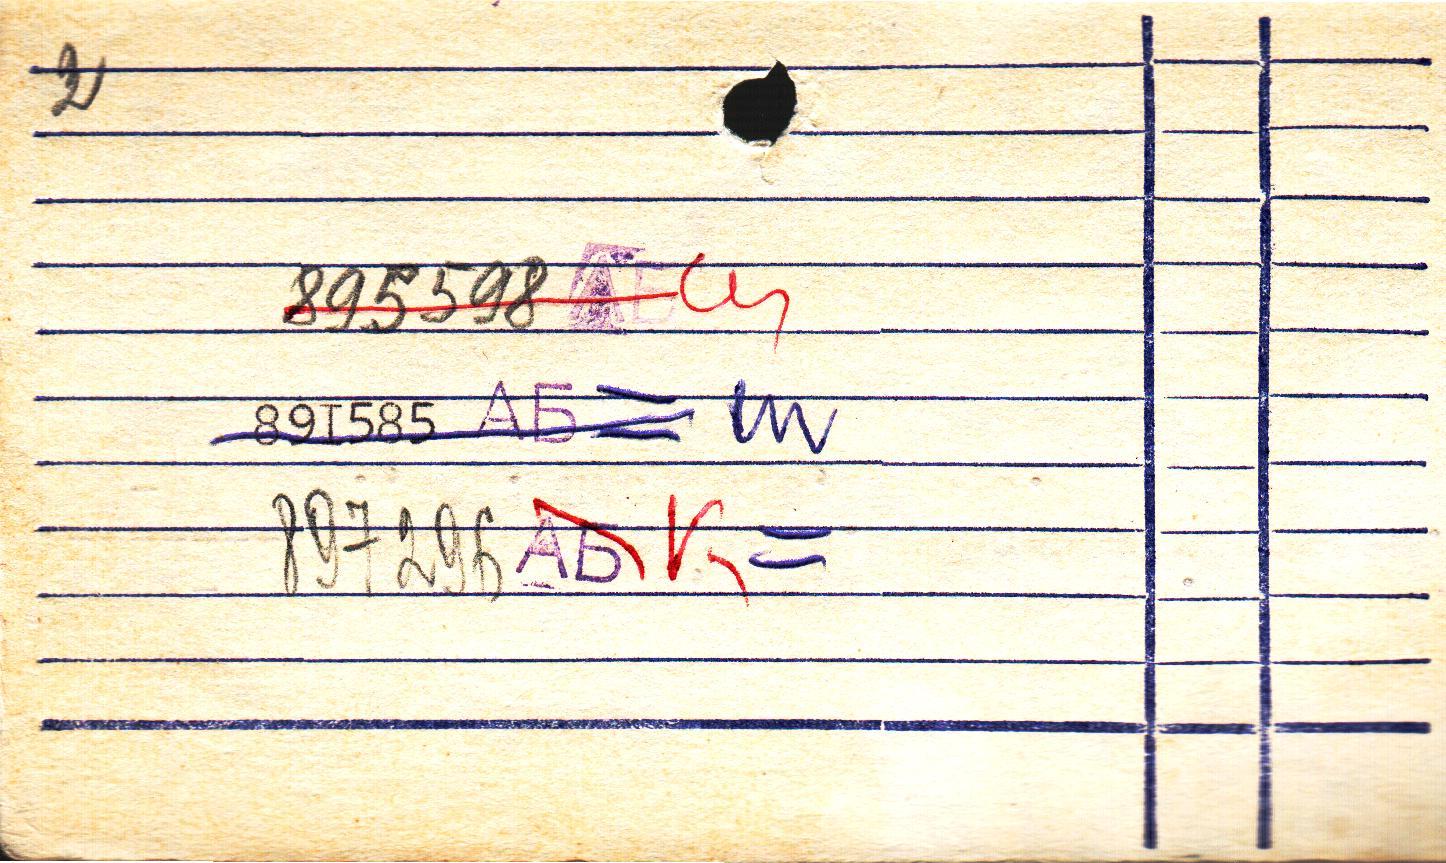 2
895598 АБ
89I585 АБ =
897296 АБ =